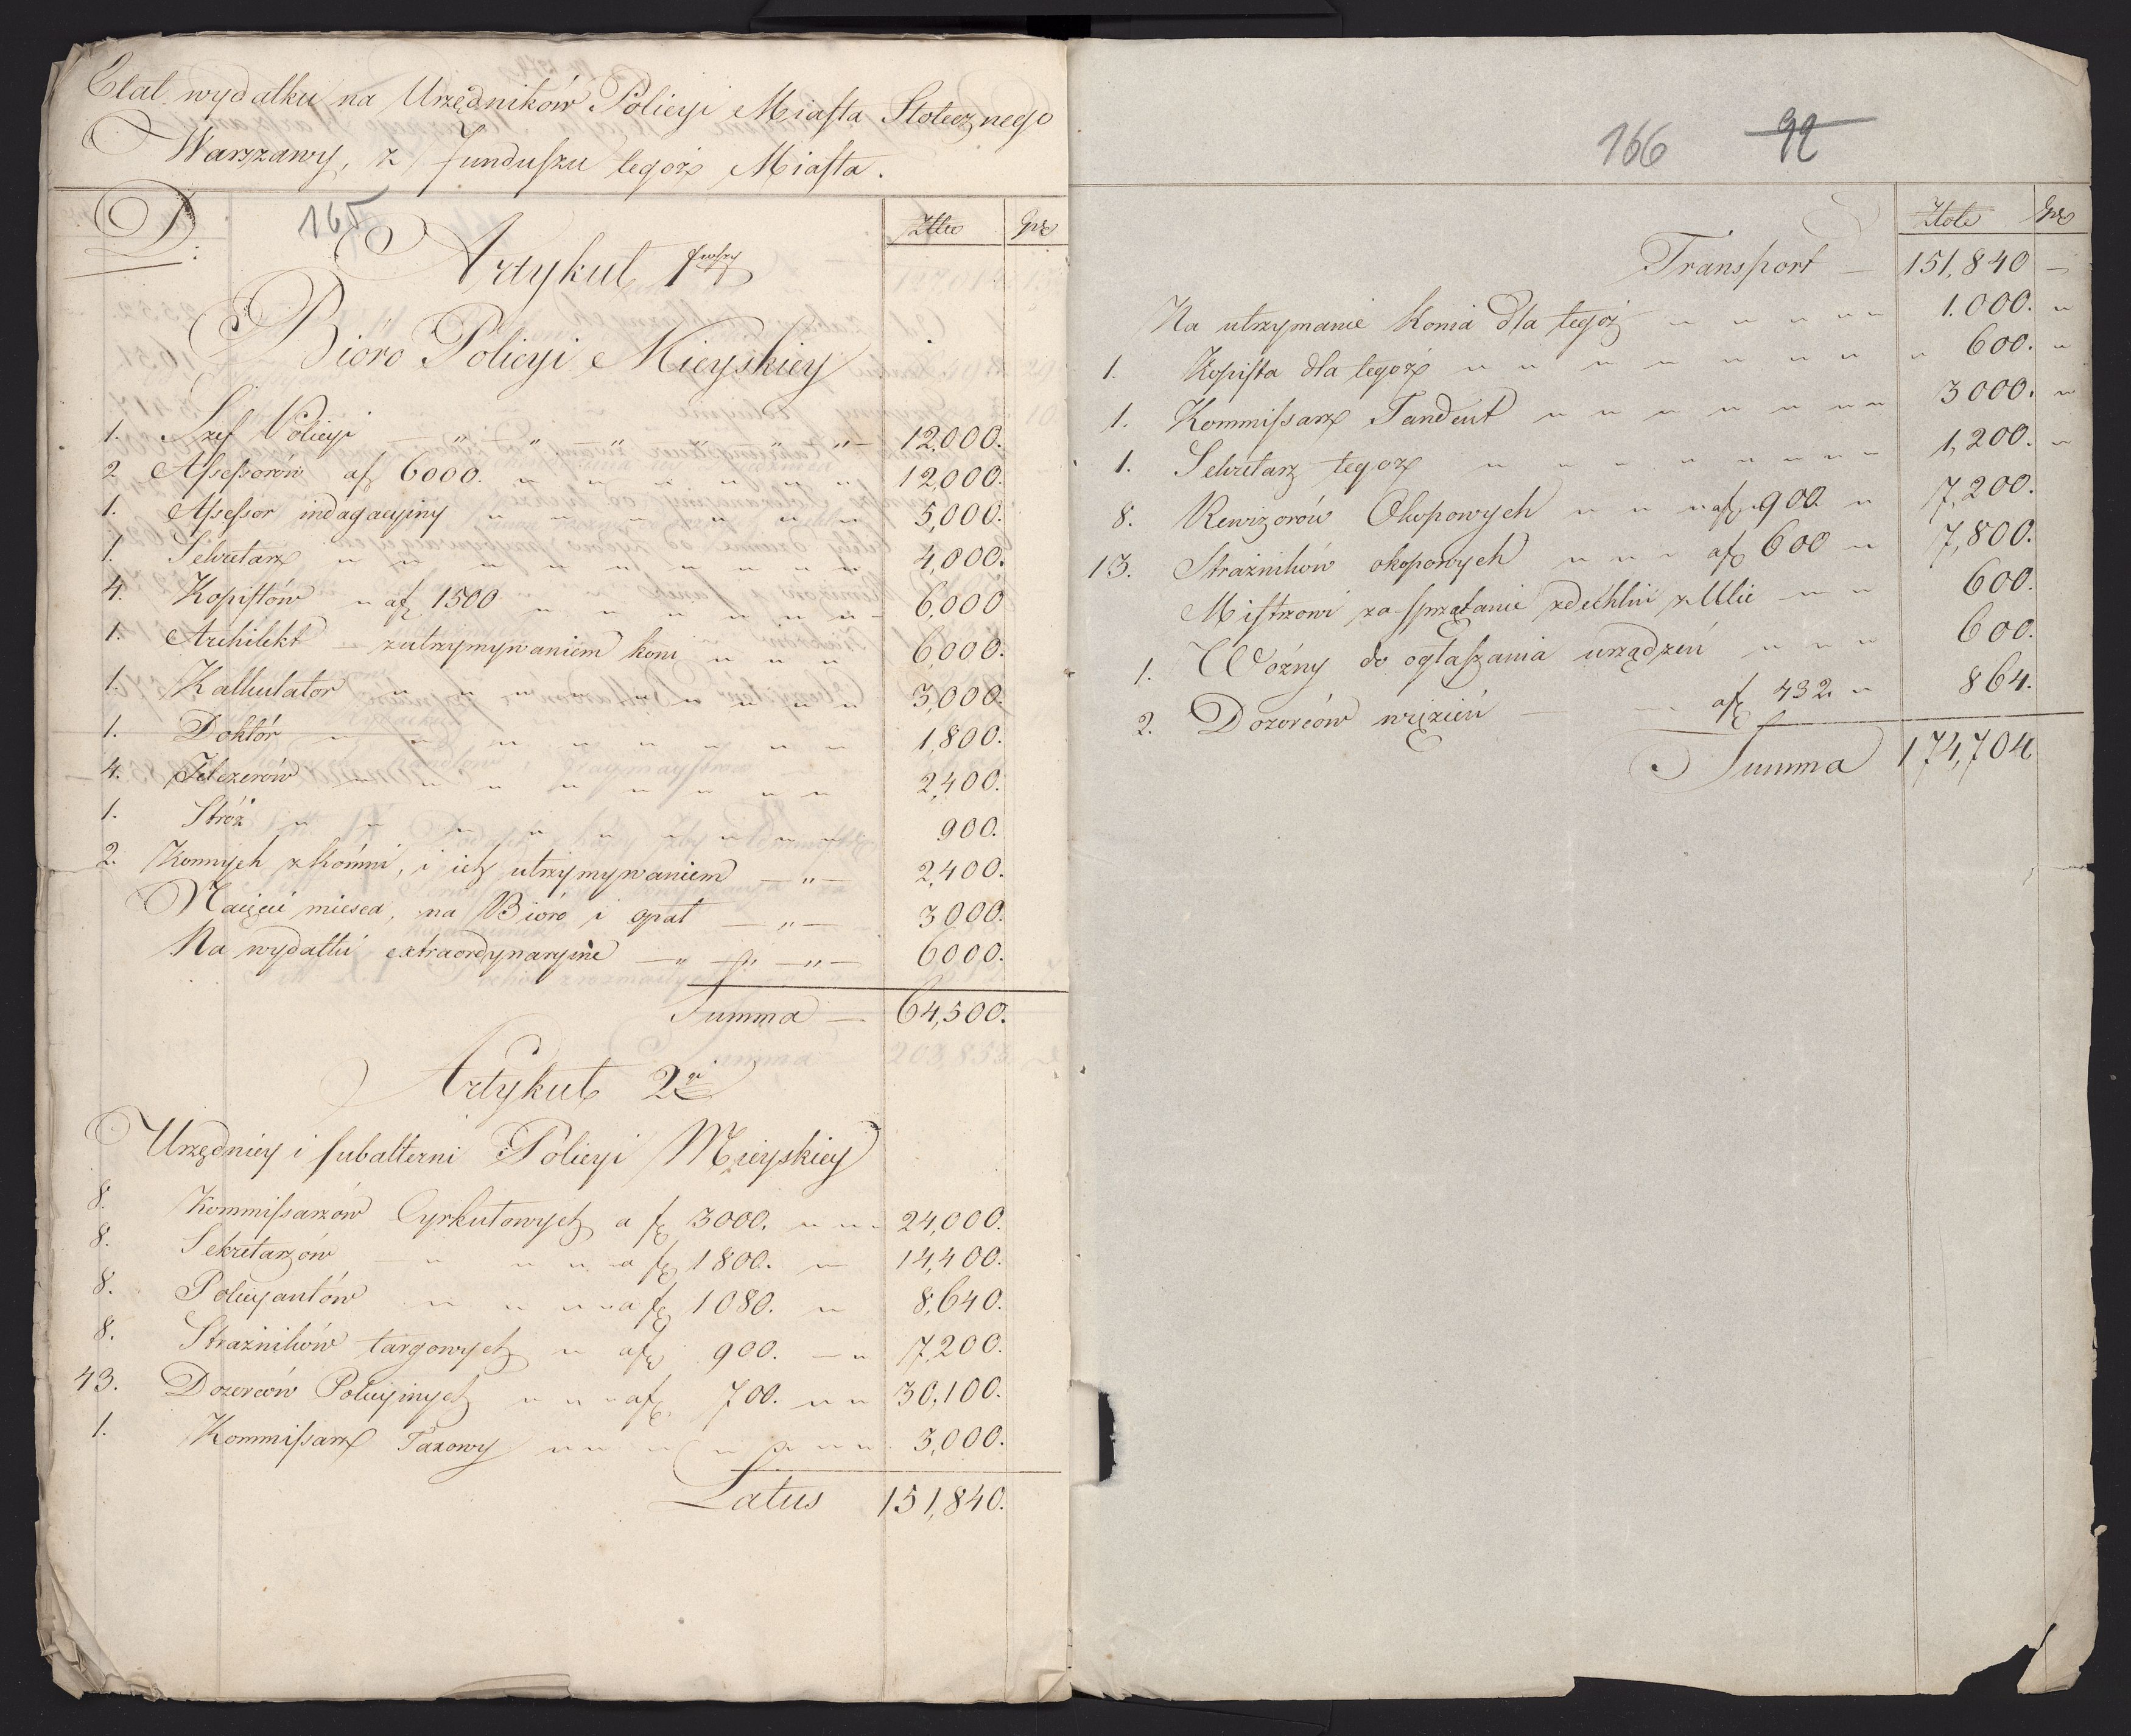 Etat wydatku na Urzędników Policyi Miasta Stołecznego
Warszawy, z funduszu tegoż Miasta.
165
D:
Artykuł 1wszy
Złłeo Grz
Bióro Policyi Mieyskiey
1. Szef Policyi — " — " — " " " — 12,000.
2 Assessorów af 6000. " " " " " 12,000.
1. Assessor indagacyiny " " " " " " 5,000.
1. Sekretarz " " " " " " " " 4,800.
4. Kopistów " af 1500 " " " " " 6,000
1. Architekt — z utrzymywaniem koni " " " 6,000.
1. Kalkulator " " " " " " " " 3,000.
1. Doktór " " " " " " " " 1,800.
4. Felczerów " " " " " " " " 2,400.
1. Stróż " " " " " " " " 900.
2. Konnych z końmi, i ich utrzymywaniem — " — 2,400.
Naięcie miesca, na Bióro i opał — " — 3,000.
Na wydatki extraordynaryine — " — " — " — 6,000.
Summa — 64,500.
Artykuł 2gi
Urzędnicy i subalterni Policyi Mieyskiey
8. Kommissarzów Cyrkułowych a f 3000. " " " 24,000.
8. Sekretarzów — " " " a f 1800. " 14,400.
8. Policyantów " " " " a f 1080. " 8,640.
8. Strażników targowych " af 900. — " 7,200.
43. Dozorców Policyinych " " " af 700. " " 30,100.
1. Kommissarz Taxowy " " " " " " " 3,000.
Latus 151,840.
166 92
Złote Grz
Transport — 151,840 —
Na utrzymanie konia dla tegoż " " " " " 1.000. "
1. Kopista dla tegoż " " " " " " " " 600. "
1. Kommissarz Tandeut " " " " " " " " 3000. "
1. Sekretarz tegoż " " " " " " " " 1,200. "
8. Rewizorów Okopowych " " " af 900 " 7,200.
13. Strażników okopowych " " " af 600 " 7,800.
Mistrzowi za sprzątanie zdechlin z Ulic " " 600.
1. Woźny do ogłaszania urządzeń " " " 600.
2. Dozorców więzień — " af 432 " 864.
Summa 174,704